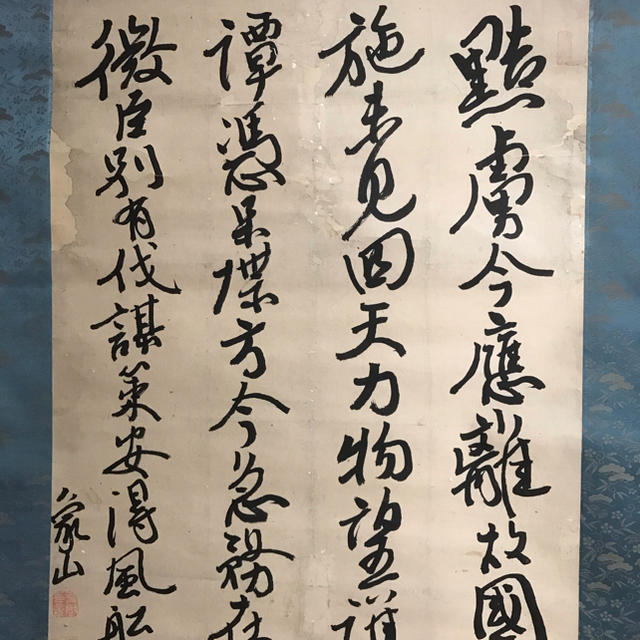 黠虜今應離故國
施未見回天力物望誰
譚憑堞方今急務在
微臣別有伐謀策安得風舩
象山